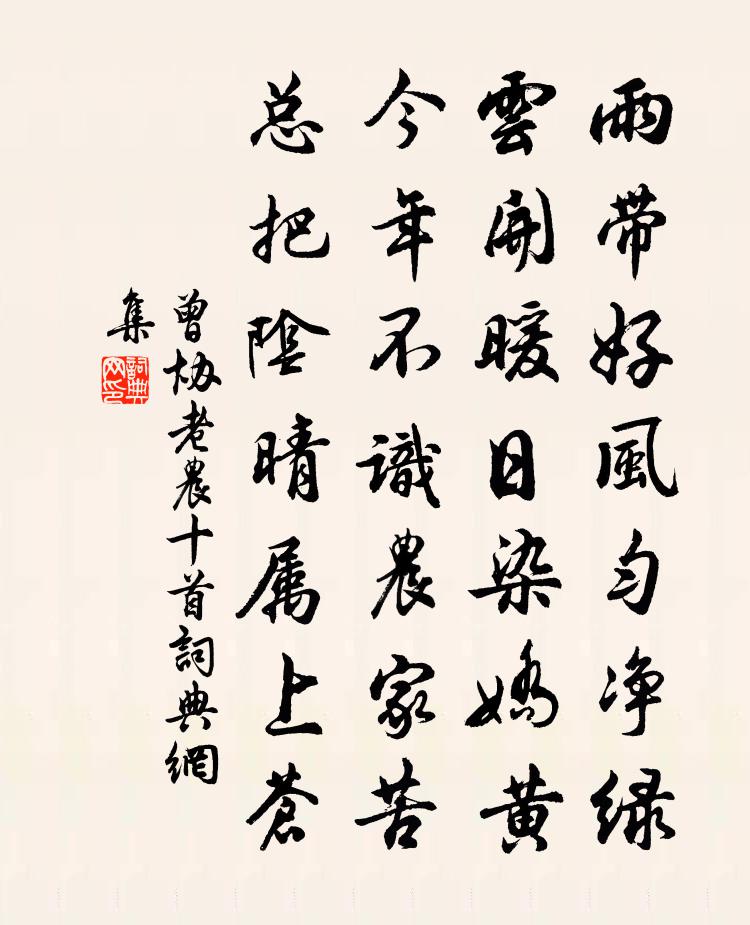 雨带好風匀净緑
雲開暖日染嬌黄
今年不識農家苦
总把陰晴属上蒼
曾协老農十首詞典網
集
詞典网印